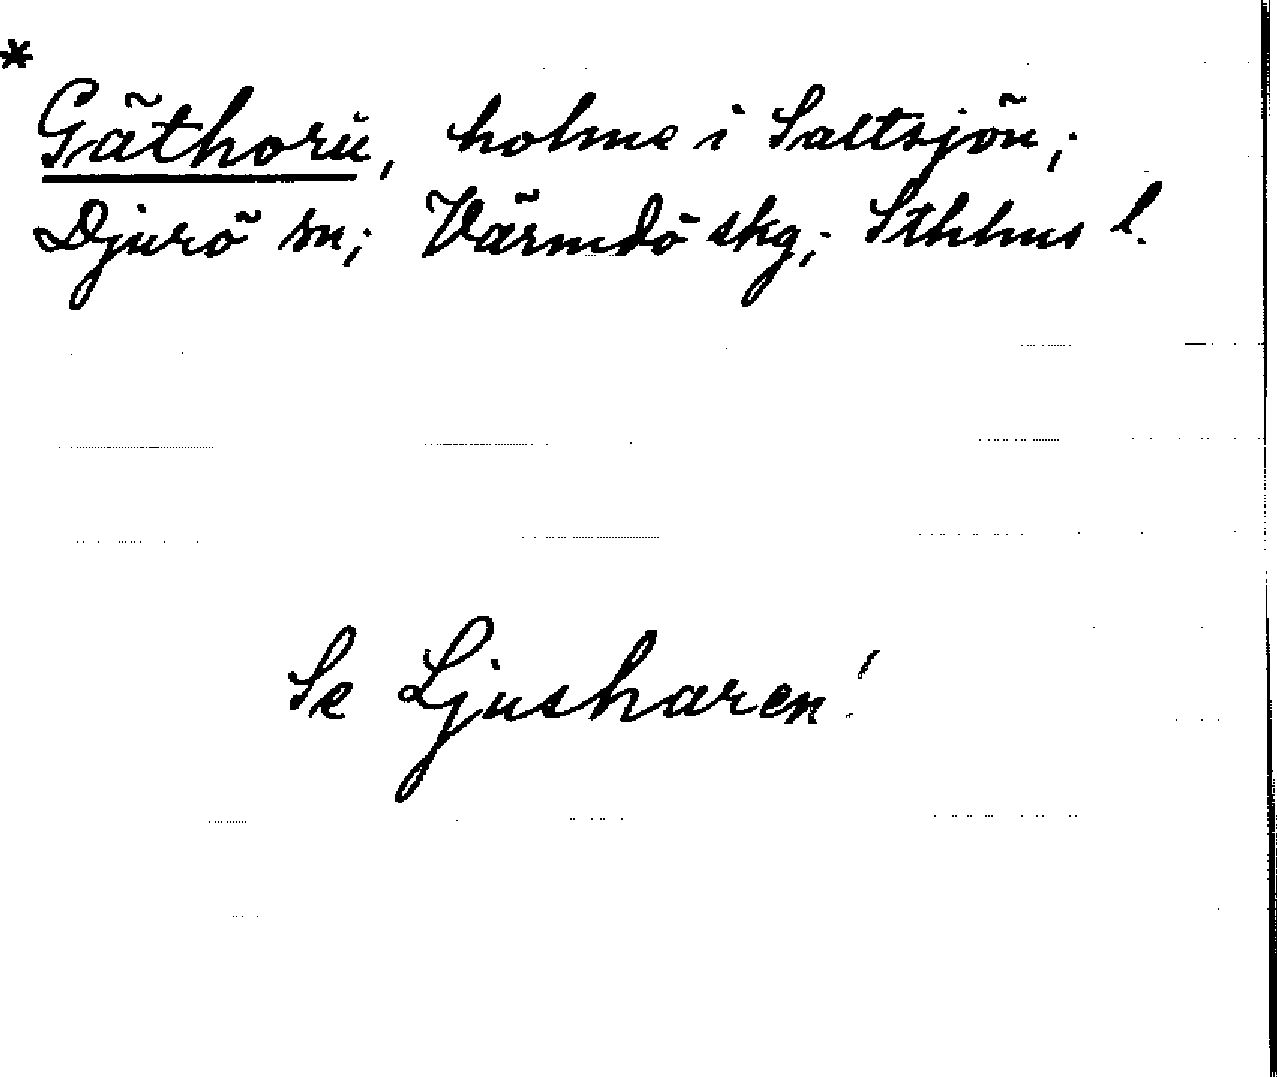 *
Gäthorü, holme i Saltsjön;
Djurö sn; Värmdö skg; Sthhus l.
Se Ljusharen!